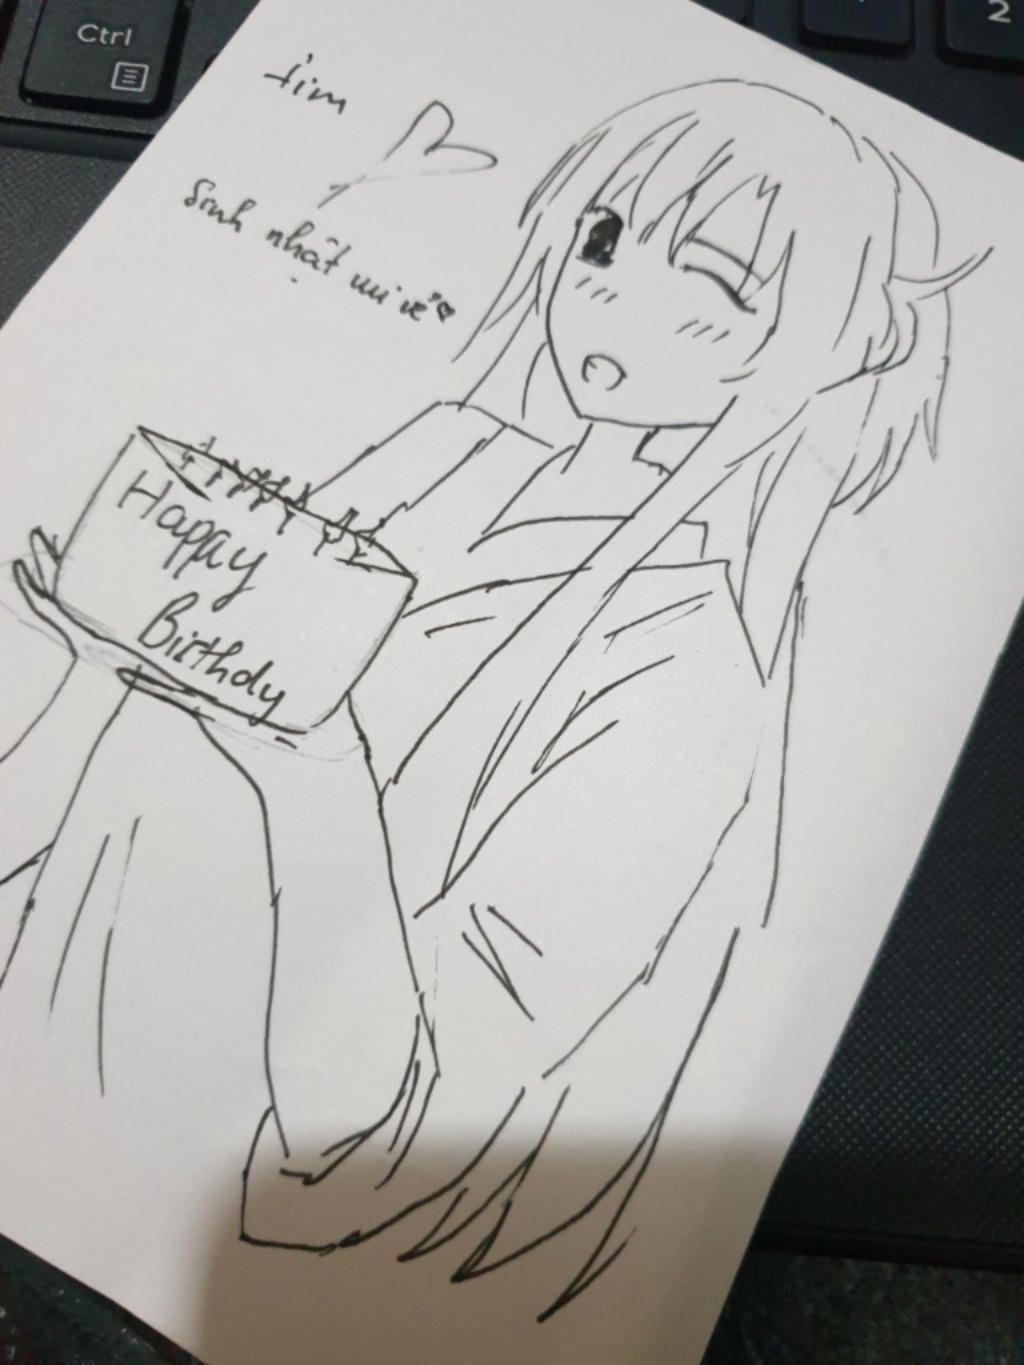 Ctrl
2
tim
Sinh nhật vui vẻ
Happy
Birthdy